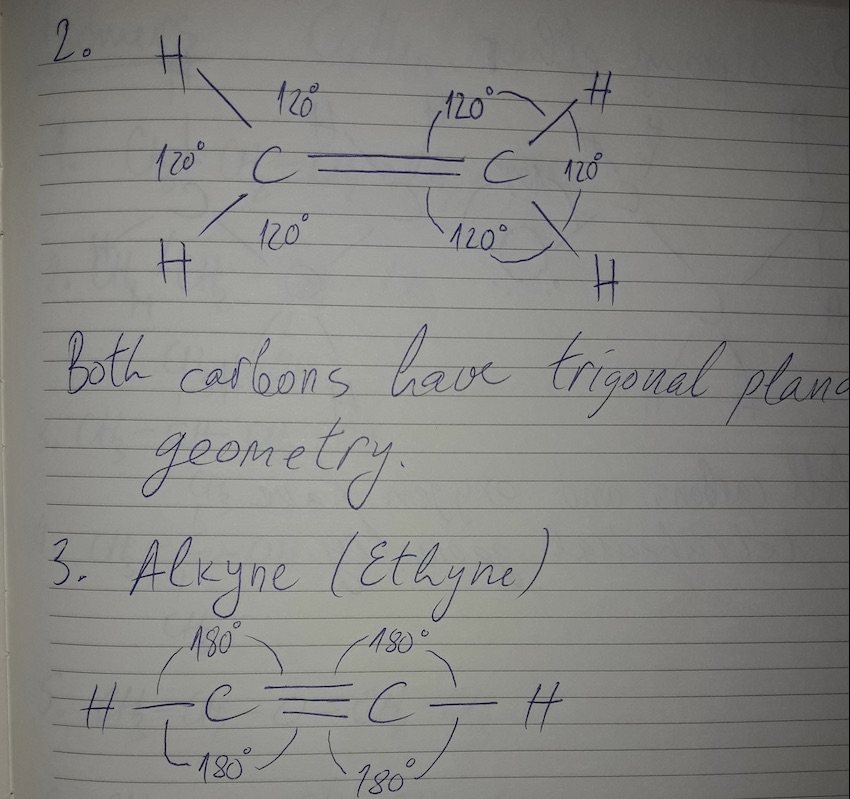 2.
H 120° 120° H
120° C C 120°
H 120° 120° H
Both carbons have trigonal plana
geometry.
3. Alkyne (Ethyne)
180° 180°
H — C ≡ C — H
180° 180°